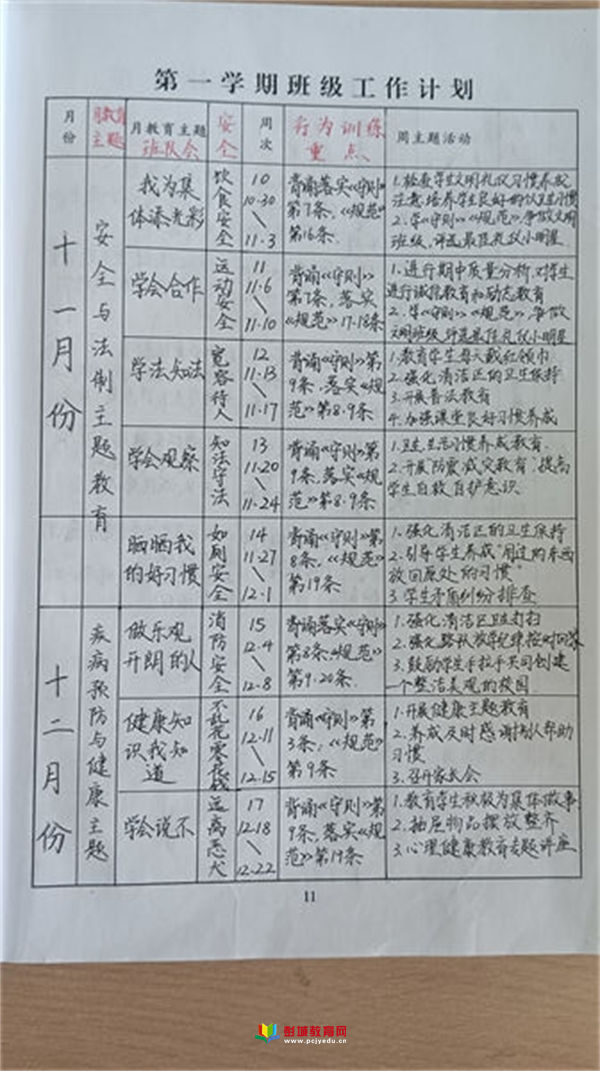 第一学期班级工作计划
月份
月教育主题
月教育主题
班队会
安全
周次
行为训练重点
周主题活动
十一月份
安全与法制主题教育
我为集
体添光彩
饮食安全
10
10·30
11·3
背诵落实《守则》
第7条,《规范》
第16条.
1.检查学生文明礼仪习惯养成
注意培养学生良好的饮卫生习惯
2.学《守则》《规范》,争做文明
班级,评选最佳礼仪小明星.
学会合作
运动安全
11
11·6
11·10
背诵《守则》
第7条,落实
《规范》17-18条
1.进行期中质量分析,对学生
进行诚信教育和励志教育
2.学《守则》《规范》,争做
文明班级,评选最佳礼仪小明星
学法知法
宽容待人
12
11·13
11·17
背诵《守则》第
9条,落实《规
范》第8·9条
1.教育学生每天戴红领巾
2.强化清洁区的卫生保持
3.开展普法教育
4.加强课堂良好习惯养成
学会观察
知法守法
13
11·20
11·24
背诵《守则》第
9条,落实《规
范》第8·9条
1.卫生生活习惯养成教育.
2.开展"防震减灾教育",提高
学生自救自护意识.
晒晒我
的好习惯
如厕安全
14
11·27
12·1
背诵《守则》第
8条,《规范》
第19条
1.强化清洁区的卫生保持
2.引导学生养成"用过的东西
放回原处的习惯"
3.学生矛盾纠纷排查
十二月份
疾病预防与健康主题
做乐观
开朗的人
消防安全
15
12·4
12·8
背诵落实《守则》
第8条《规范》
第9·20条.
1.强化清洁区卫生打扫
2.强化路队放学纪律按时回家
3.鼓励学生手拉手共同创建
一个整洁美观的校园
健康知
识我知
道
不乱花零花钱
16
12·11
12·15
背诵《守则》第
3条,《规范》
第9条
1.开展健康主题教育
2.养成及时感谢别人帮助
习惯
3.召开家长会
学会说不
远离恶犬
17
12·18
12·22
背诵《守则》第
9条,落实《规
范》第19条
1.教育学生积极为集体做事
2.抽屉物品摆放整齐
3.心理健康教育专题讲座
11
彭城教育网
www.pcjyedu.cn